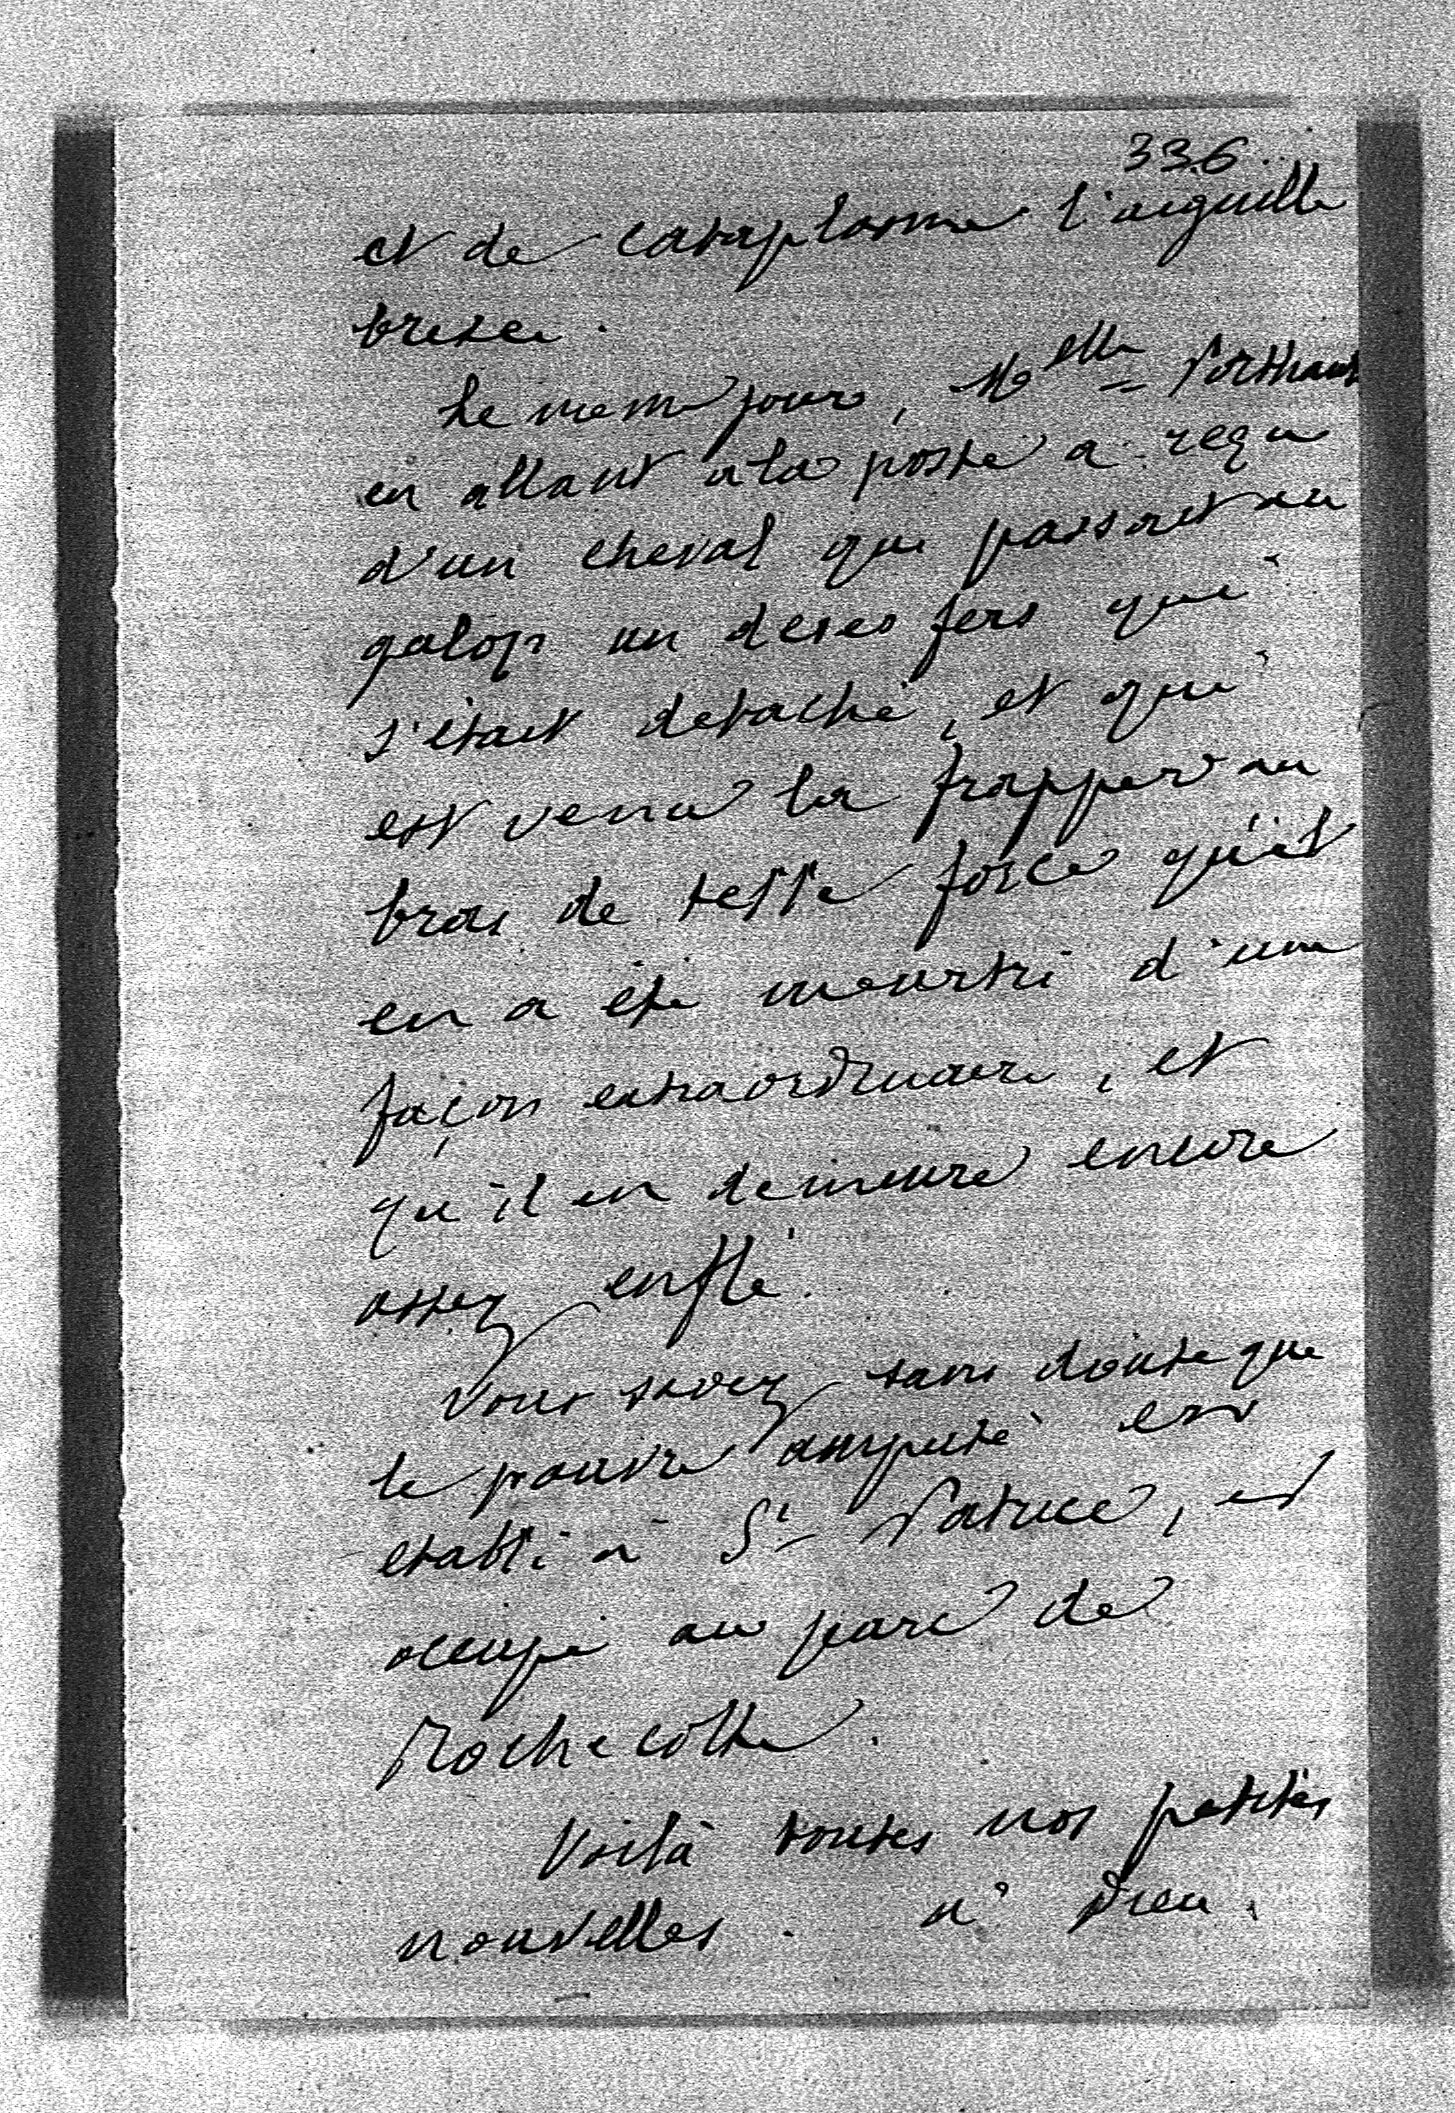 336
et de cataplasme l'aiguille
brisée.
Le meme jour, Melle
en allant a la poste a reçu
d'un cheval qui passait au
galop un de ses fers qui
s'était detaché, et qui
est venu la frapper au
bras de telle force qu'il
en a été meurtri d'une
façon extraordinaire, et
qu'il en demeure encore
assez enflé.
Vous savez sans doute que
le pauvre amputé est
etabli à St Patrice, et
occupé au parc de
Rochecotte.
Voilà toutes nos petites
nouvelles. a Dieu.